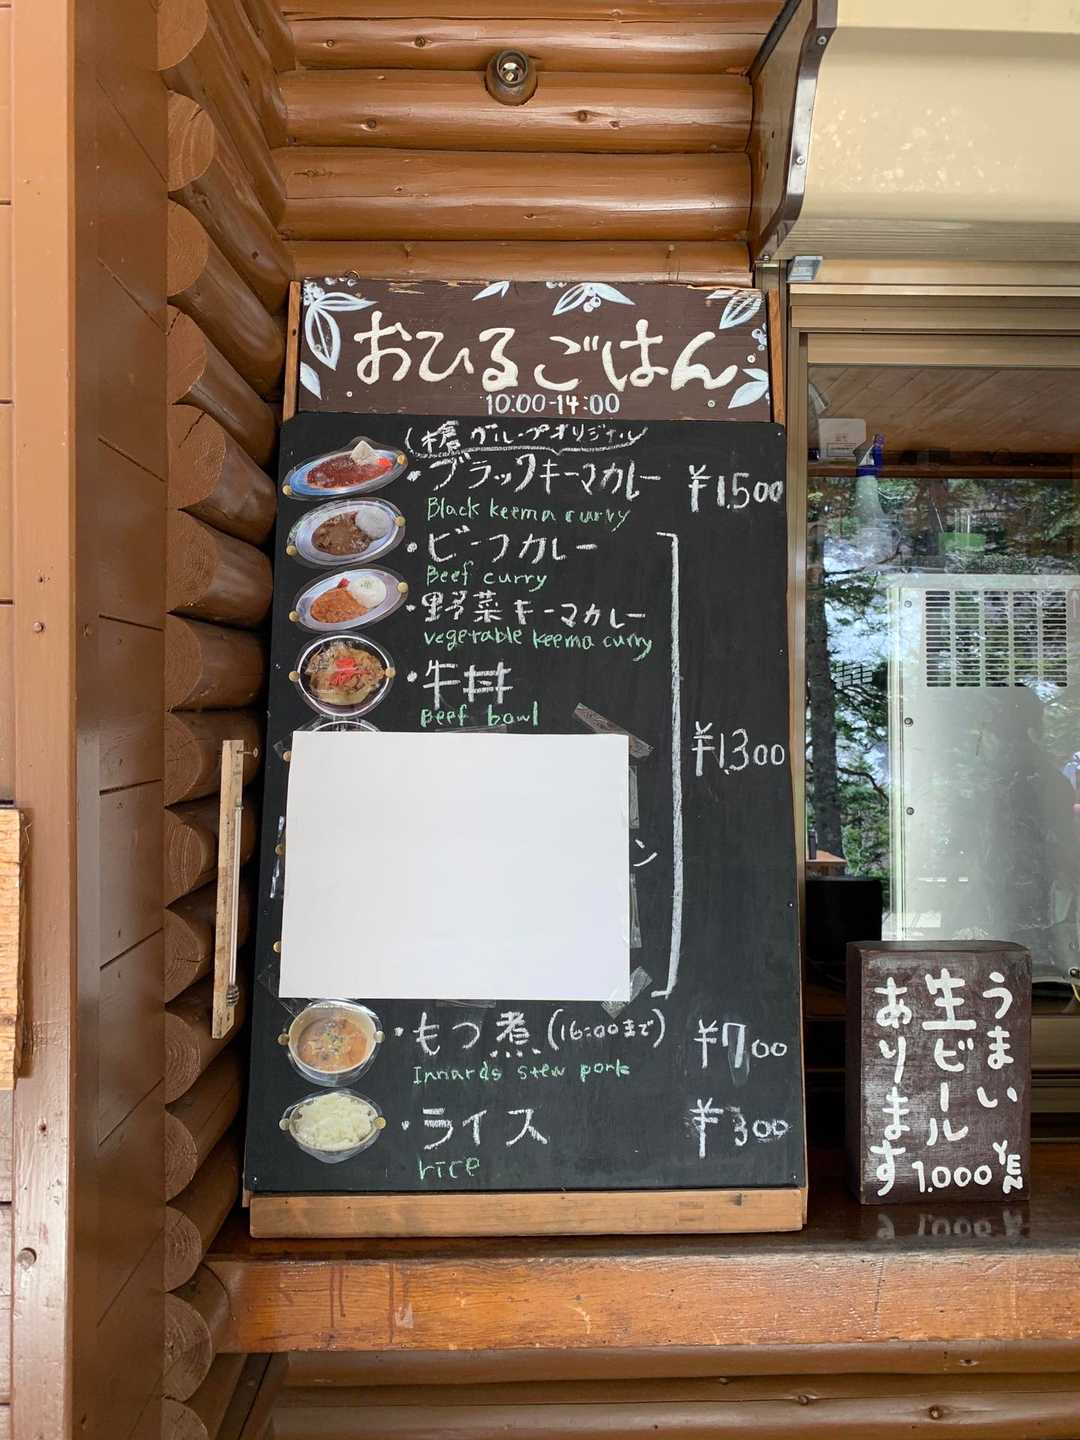 おひるごはん
10:00-14:00
(槍グループオリジナル
・ブラックキーマカレー ¥1,500
Black keema curry
・ビーフカレー
Beef curry
・野菜キーマカレー
vegetable keema curry
・牛丼
Beef bowl
¥1,300
ン
・もつ煮(16:00まで) ¥700
Innards stew pork
・ライス ¥300
rice
うまい
生ビール
あります
1.000 YEN